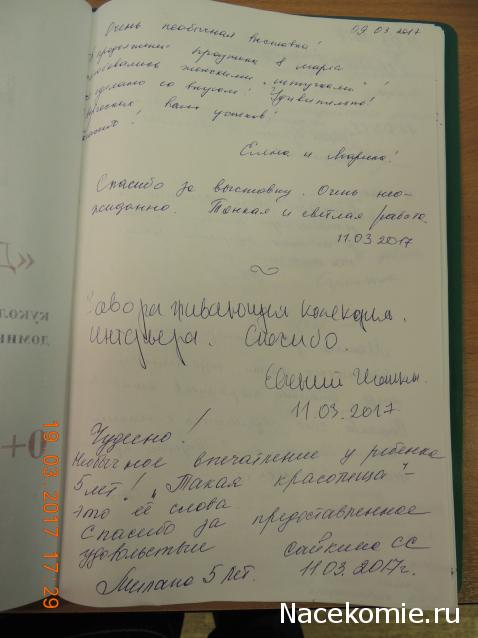 09.03.2017
Очень необычная выставка!
В продолжении праздника 8 марта
женскими "штучками"!
сделано со вкусом! Удивительно!
Вам успехов!
Елена и Марина!
Спасибо за выставку. Очень нео-
жиданно. Тонкая и светлая работа.
11.03.2017
Завораживающая колекция.
интерьера. Спасибо.
Евгений
11.03.2017
Чудесно!
Необычное впечатление у ребенка
5 лет! "Такая красотища" -
это её слова
Спасибо за предоставленное
удовольствие Сайкино СС
Милана 5 лет. 11.03.2017г.
«Д
кукол
домик
0+
19.03.2017 17:29
Nacekomie.ru